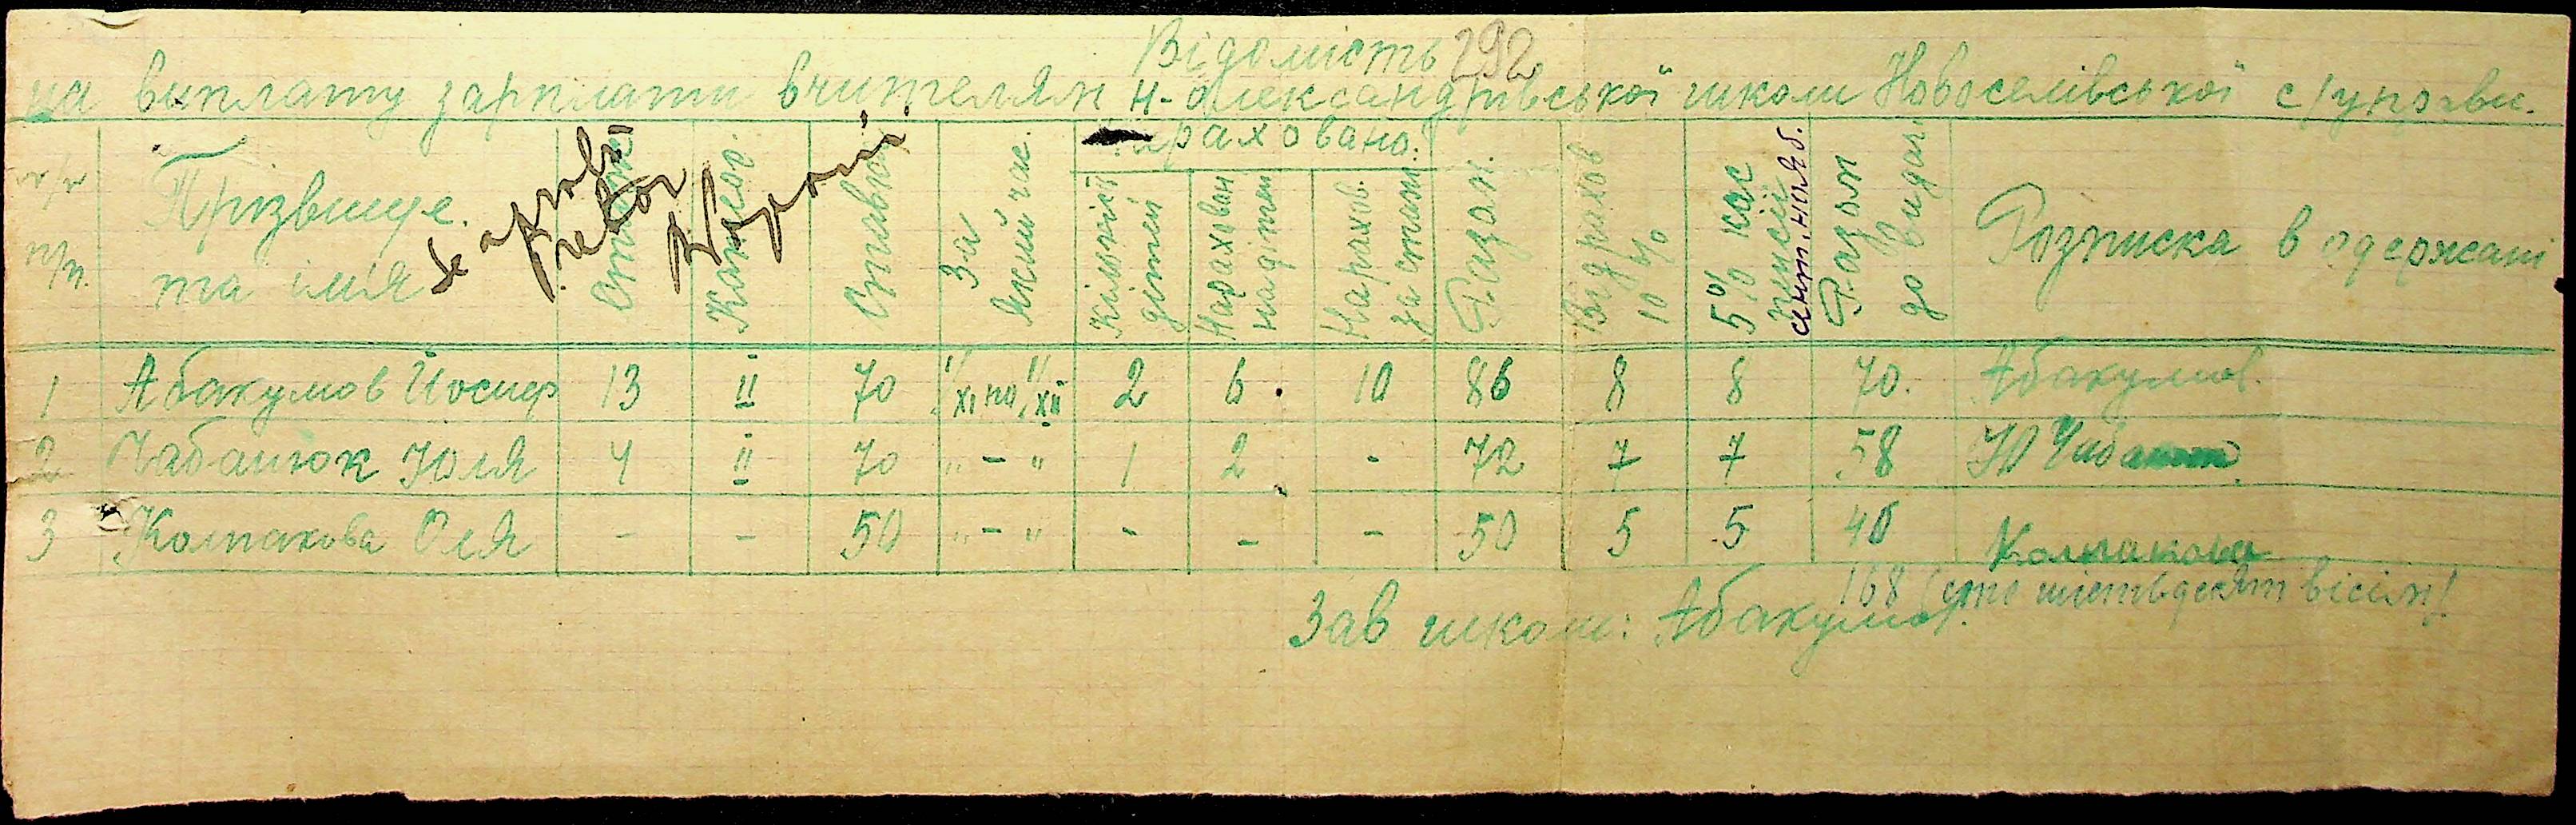 Відомість 292
на виплату зарплати вчителям Н-Олександрівської школи Новоселівської с/управи.
№/№ п/п.
Прізвище та ім'я
Стаж
Категор.
Ставка
За який час.
раховано.
Кількість дітей
Нарахован на дітей
Нарахов. за стаж
Разом.
Відрахов 10 %
5% кас
сент, нояб.
Разом до видачі
Розписка в одержані
1 Абакумов Йосип 13 II 70 1/XI по 1/XII 2 6. 10 86 8 8 70. Абакумов.
2 Чабанюк Юля 4 II 70 " - " 1 2 - 72 7 7 58 Ю Чабанюк
3 Колпакова Оля - - 50 " - " - - - 50 5 5 40 Колпакова
168 (сто шістьдесят вісім)
Зав школи: Абакумов.